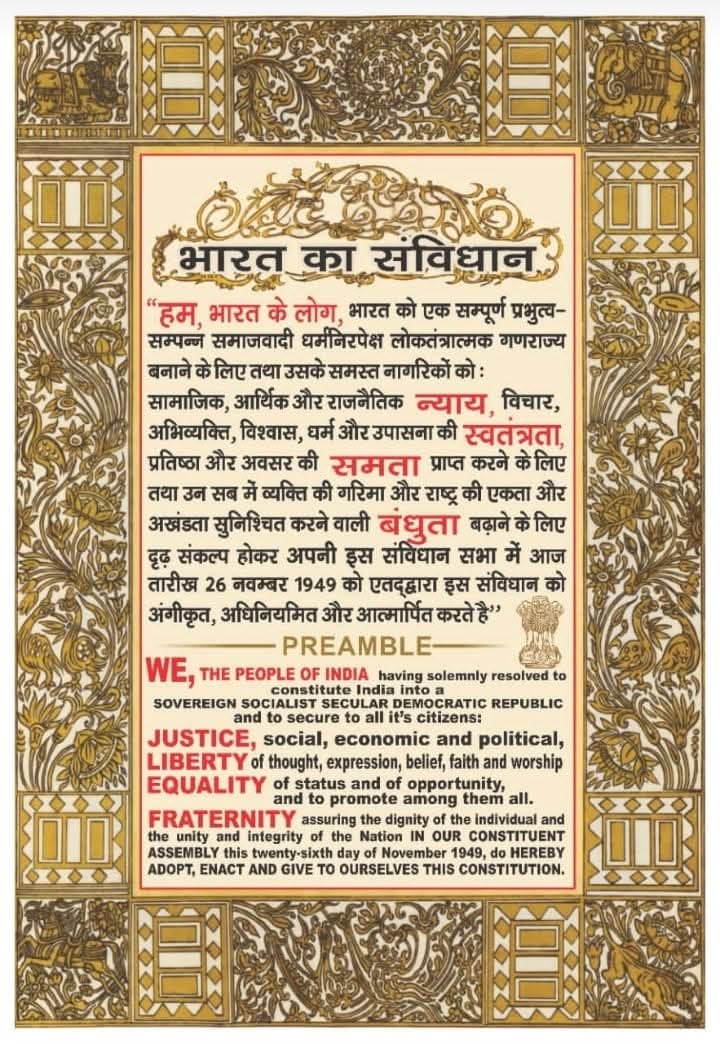 भारत का संविधान
“हम, भारत के लोग, भारत को एक सम्पूर्ण प्रभुत्व-
सम्पन्न समाजवादी धर्मनिरपेक्ष लोकतंत्रात्मक गणराज्य
बनाने के लिए तथा उसके समस्त नागरिकों को :
सामाजिक, आर्थिक और राजनैतिक न्याय, विचार,
अभिव्यक्ति, विश्वास, धर्म और उपासना की स्वतंत्रता,
प्रतिष्ठा और अवसर की समता प्राप्त करने के लिए
तथा उन सब में व्यक्ति की गरिमा और राष्ट्र की एकता और
अखंडता सुनिश्चित करने वाली बंधुता बढ़ाने के लिए
दृढ़ संकल्प होकर अपनी इस संविधान सभा में आज
तारीख 26 नवम्बर 1949 को एतद्द्वारा इस संविधान को
अंगीकृत, अधिनियमित और आत्मार्पित करते है”
PREAMBLE
WE, THE PEOPLE OF INDIA having solemnly resolved to
constitute India into a
SOVEREIGN SOCIALIST SECULAR DEMOCRATIC REPUBLIC
and to secure to all it's citizens:
JUSTICE, social, economic and political,
LIBERTY of thought, expression, belief, faith and worship
EQUALITY of status and of opportunity,
and to promote among them all.
FRATERNITY assuring the dignity of the individual and
the unity and integrity of the Nation IN OUR CONSTITUENT
ASSEMBLY this twenty-sixth day of November 1949, do HEREBY
ADOPT, ENACT AND GIVE TO OURSELVES THIS CONSTITUTION.